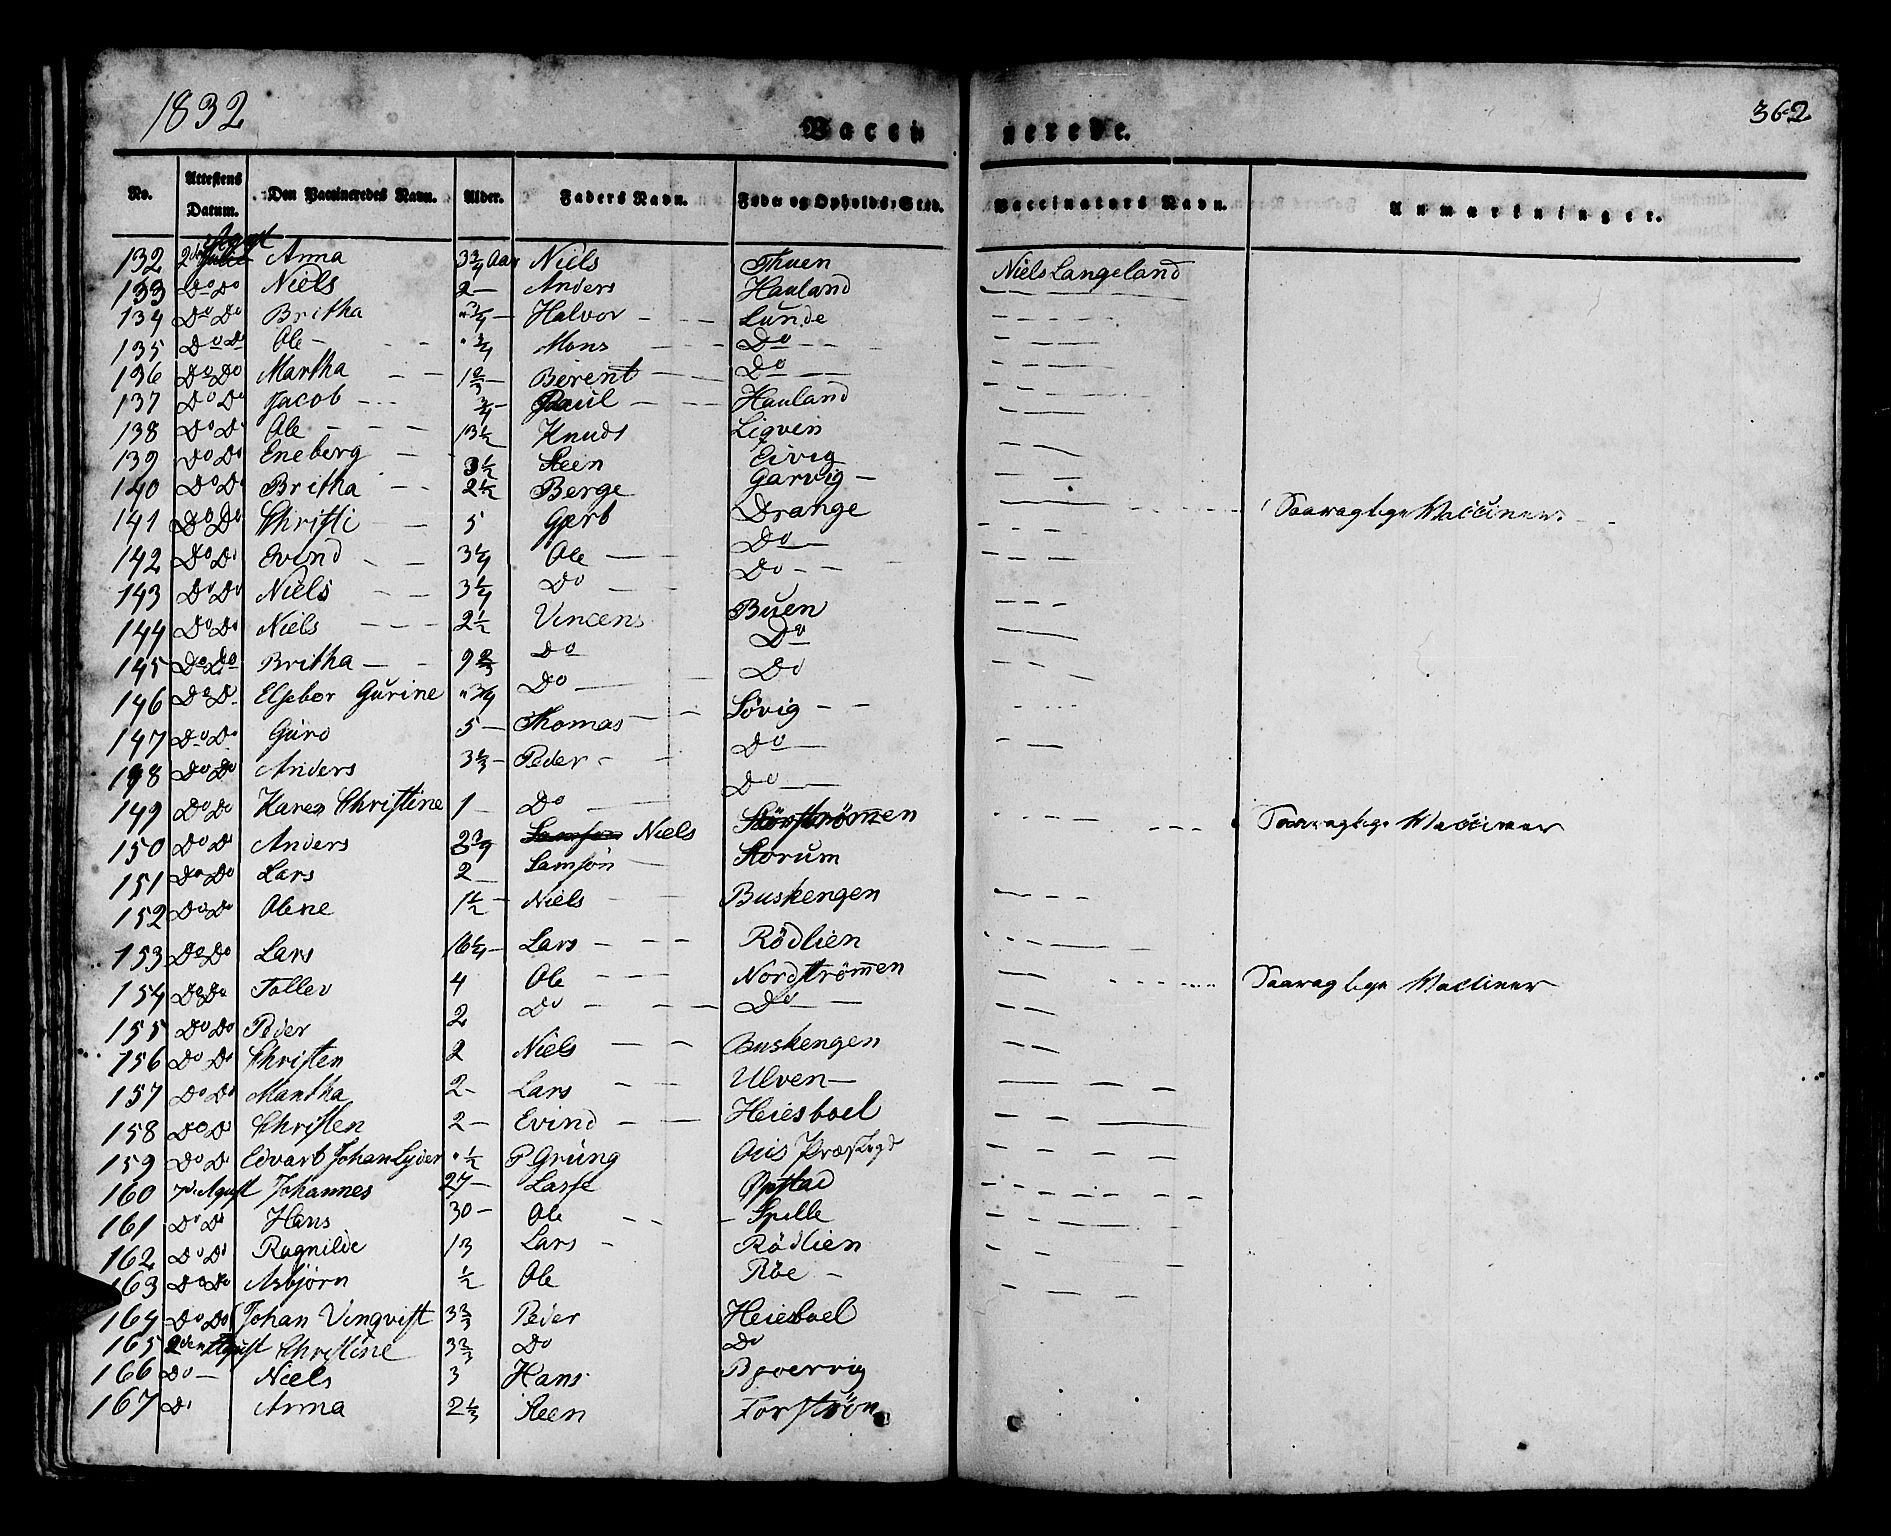 1832
362
Vaccinerede.
No. Attestens Datum. Den Vaccineredes Navn. Alder. Faders Navn. Føde- og Opholds-Sted. Vaccinators Navn. Anmærkninger.
132 2den Julie Agust Anna 3 3/4 Aar Niels Thuen Niels Langeland
133 Do Do Niels 2 — Anders Hauland
134 Do Do Britha " 3/4 — Halvor Lunde
135 Do Do Ole " 3/4 Mons Do
136 Do Do Martha 1 2/3 — Berent Do
137 Do Do Jacob 3/4 — Paul Hauland
138 Do Do Ole 13 1/2 Knuds Ligvin
139 Do Do Eneberg 3 1/2 Steen Eivig
140 Do Do Britha 2 1/2 Berge Garvig —
141 Do Do Christi 5 Gjert Drange
142 Do Do Evind 3 1/4 Ole Do
143 Do Do Niels 3 1/4 Do Do
144 Do Do Niels 2 1/2 Vincens Buen
145 Do Do Britha 9 2/3 Do Do
146 Do Do Elsebør Gurine " 3/4 Do Do
147 Do Do Guro 5 — Thomas Søvig
148 Do Do Anders 3 1/3 — Peder Do
149 Do Do Karen Christine 1 — Do Do
150 Do Do Anders Samson Niels Storstrømmen
151 Do Do Lars 2 Samson Storum
152 Do Do Olene 1 1/2 — Niels Buskengen
153 Do Do Lars 16 1/4 — Lars Rødlien
154 Do Do Tollev 4 Ole Nordstrømmen
155 Do Do Peder 2 Do Do
156 Do Do Christen 2 Niels Buskengen
157 Do Do Mantha 2 — Lars Ulven —
158 Do Do Christen 2 — Evind Heiesboel
159 Do Do Edvart Johan Lyder " 1/2 P Grüng
160 7de Agust Johannes 27 — Lasse
161 Do Do Hans 30 — Ole Spille
162 Do Do Ragnilde 13 Lars Rødlien
163 Do Do Asbjørn 1/2 Ole Røe —
164 Do Do Johan Vinqvist 3 2/3 Peder Heiesboel
165 2den Agust Christine 3 2/3 Do Do
166 Do — Niels 3 Hans
167 Do Anna 2 1/3 Steen Forstrøn